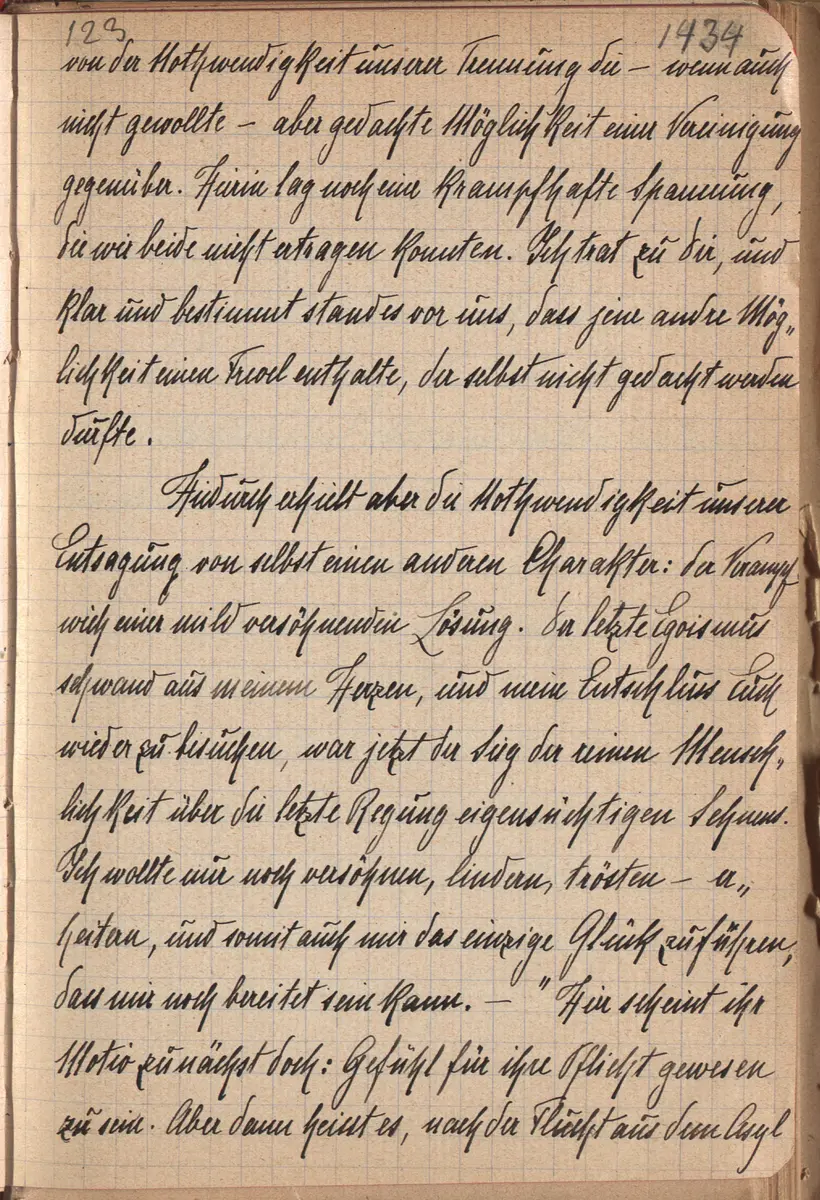 123 1434
von der Nothwendigkeit unserer Trennung die – wenn auch
nicht gewollte – aber gedachte Möglichkeit einer Vereinigung
gegenüber. Hierin lag noch eine krampfhafte Spannung,
die wir beide nicht ertragen konnten. Ich trat zu Dir, und
klar und bestimmt stand es vor uns, dass jene andre Mög„
lichkeit einen Frevel enthalte, der selbst nicht gedacht werden
durfte.
Hiedurch erhielt aber die Nothwendigkeit unserer
Entsagung von selbst einen anderen Charakter: der
wich einer mild versöhnenden Lösung. Der letzte Egoismus
schwand aus meinem Herzen, und mein Entschluss Euch
wieder zu besuchen, war jetzt der Sieg der reinen Mensch„
lichkeit über die letzte Regung eigensüchtigen Sehnens.
Ich wollte nur noch versöhnen, lindern, trösten – er„
heitern, und somit auch mir das einzige Glück zuführen,
dass mir noch bereitet sein kann. – " Hier scheint ihr
Motiv zunächst doch: Gefühl für ihre Pflicht gewesen
zu sein. Aber dann heisst es, nach der Flucht aus dem Asyl